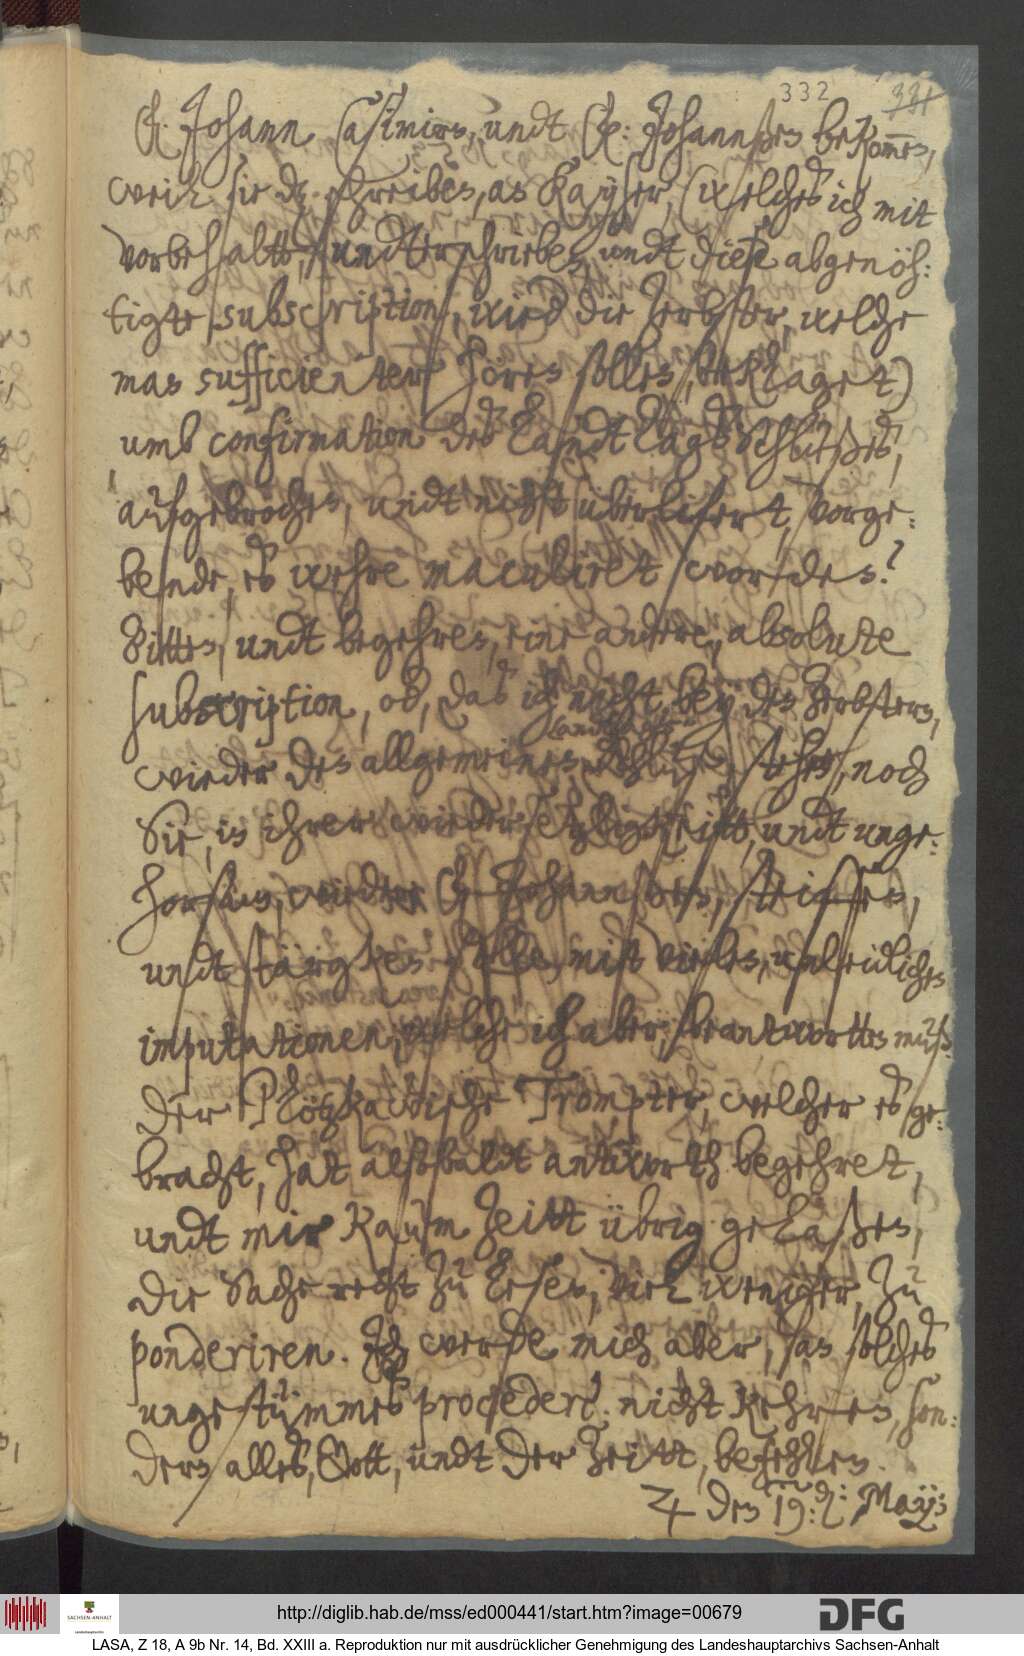 332 331
F. Johann Casimirn, undt F: Johannßen bekom̅en,
weil sie dz. schreiben, an Kayser, (welches ich mit
vorbehaltt, undterschrieben, undt diese abgenöh:
tigte subscription, wird die Zerbster, welche
man sufficienter hören sollen, beklaget)
umb confirmation des Landt Tags Schlußes,
aufgebrochen, undt nicht überlifert, vorge:
bende, es wehre maculiret worden?
Bitten, undt begehren, eine andere, absolute
subscription, od, das ich nicht bey den Zerbstern,
Landtags
wieder den allgemeinen Schluß, stehen, noch
Sie, in ihrer wiedersetzligkeitt, undt unge:
horsam, wieder F Johannßen, steiffen,
undt stärgken solle, mitt vielen, unleidlichen
imputationen, welche ich aber, beantwortten muß
Der Plötzkawische Trompter, welcher es ge:
bracht, hat alsobaldt antworth begehret,
undt mir kaum Zeitt übrig gelaßen,
die Sache recht zu lesen, viel weniger, zu
ponderiren. Ich werde mich aber, an solches
ungestümmes procedere nicht kehren, son:
dern alles, Gott, undt der Zeitt, befehlen.
♃ den 19: d: Maÿ:
http://diglib.hab.de/mss/ed000441/start.htm?image=00679
SACHSEN-ANHALT
DFG
LASA, Z 18, A 9b Nr. 14, Bd. XXIII a. Reproduktion nur mit ausdrücklicher Genehmigung des Landeshauptarchivs Sachsen-Anhalt